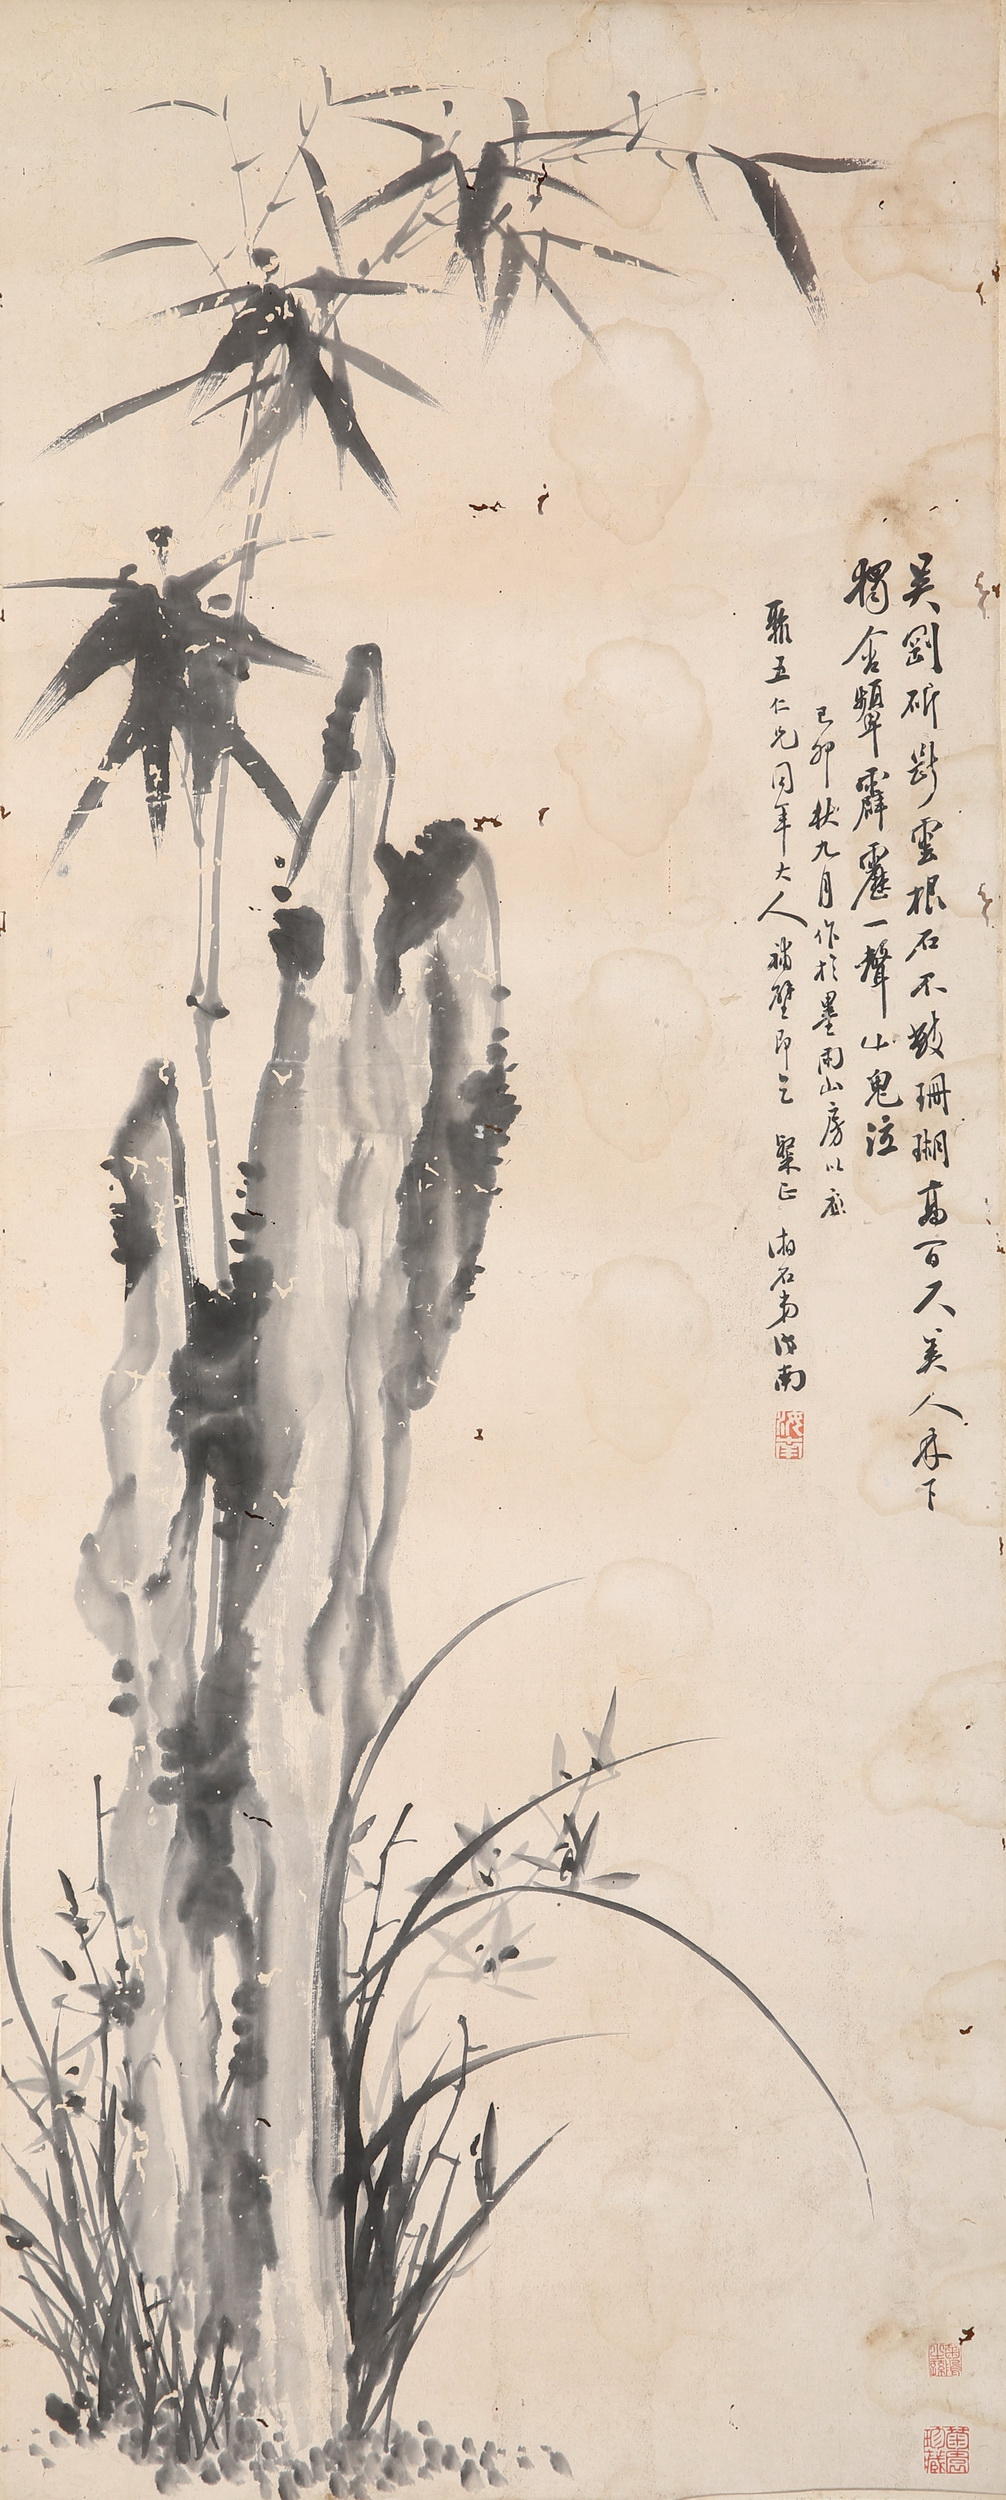 吴剛斫斷雲根石不數珊瑚高百尺美人林下
獨含顰霹靂一聲山鬼泣
己卯秋九月作於墨雨山房以應
聚五仁兄同年大人補壁即乞 粲正 湘石弟海南
海南
珍藏